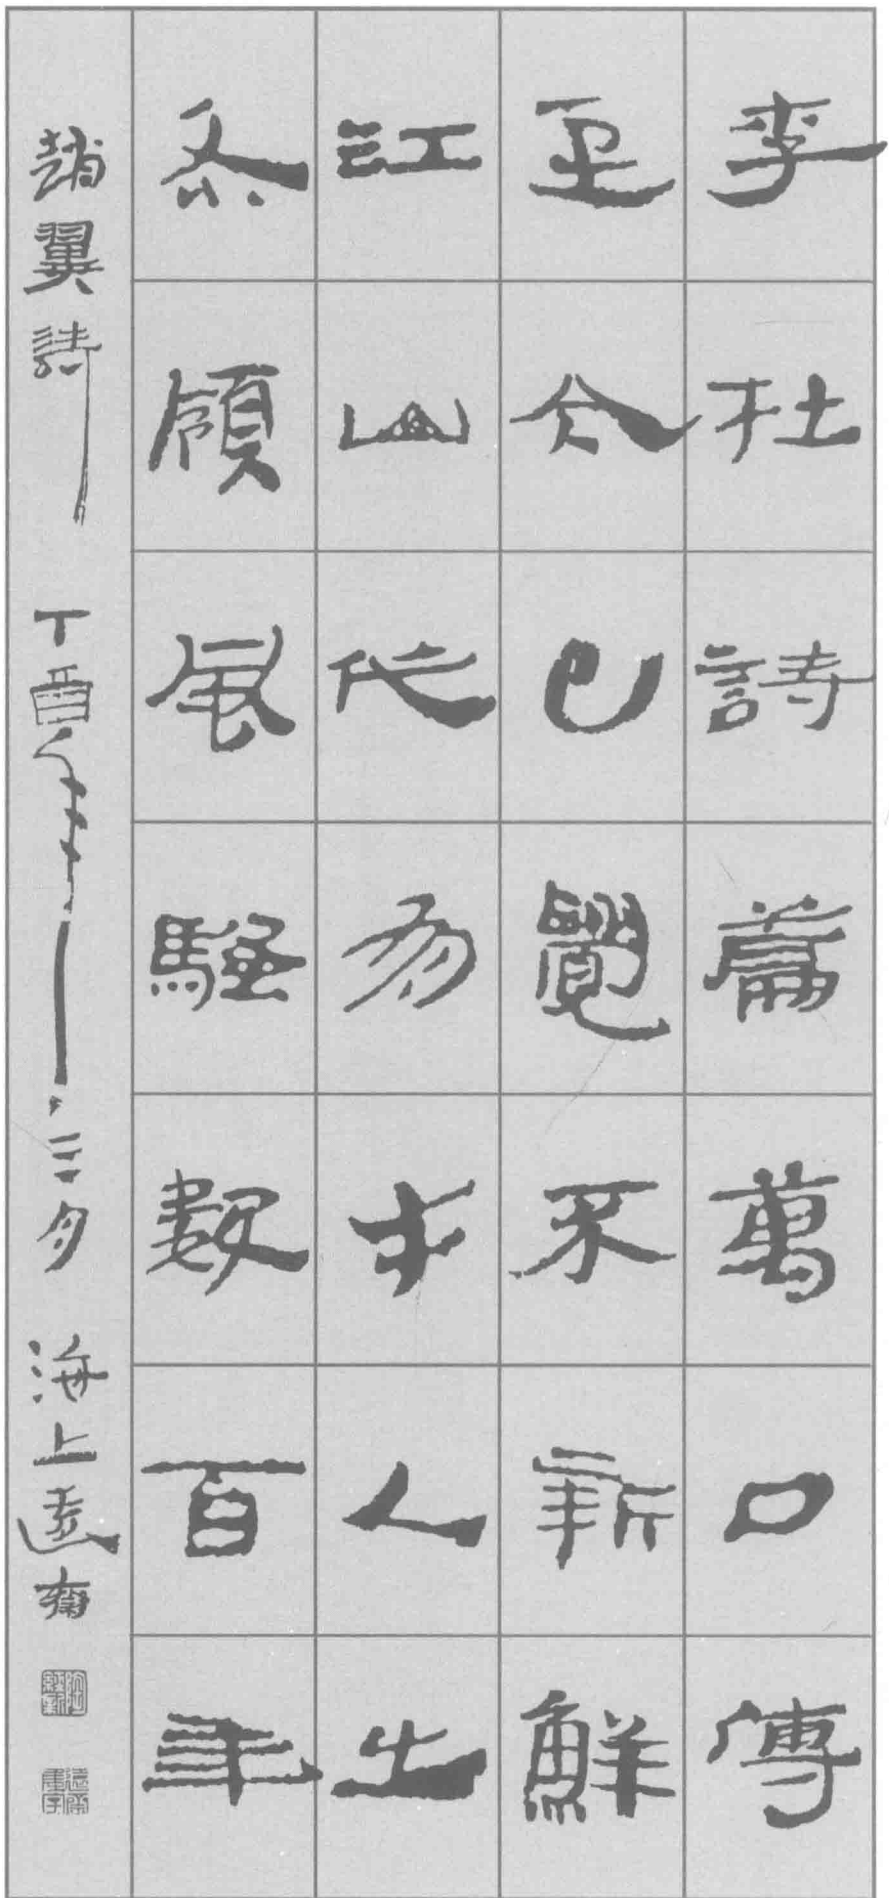 李杜詩篇萬口傳
至今已覺不新鮮
江山代有才人出
各領風騷數百年
趙翼詩 丁酉年三月 海上遠